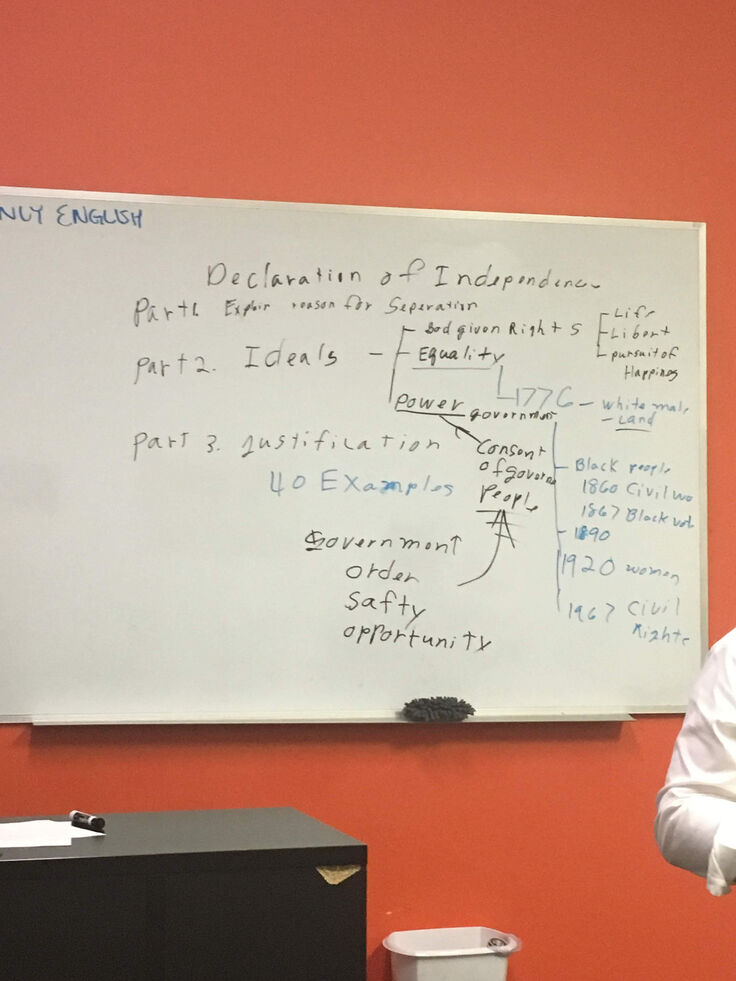 NLY ENGLISH
Declaration of Independence
Part 1. Explain reason for Seperation
Part 2. Ideals
God given Rights
Life
Libert
pursuit of
Happines
Equality
1776 - White male
- Land
Power government
Consent
of governe
People
Part 3. Justification
40 Examples
Black people
1860 Civil wa
1867 Black vot
1890
1920 women
1967 Civil
Rights
Government
order
Safty
opportunity